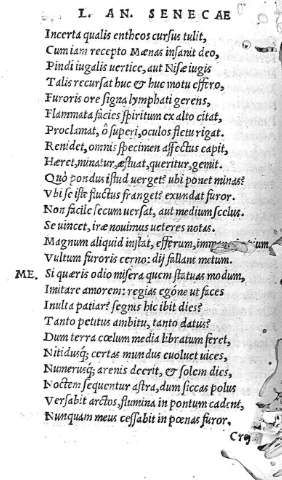 L. AN. SENECAE
Incerta qualis entheos cursus tulit,
Cum iam recepto Mænas insanit deo,
Pindi iugalis vertice, aut Nisæ iugis
Talis recursat huc & huc motu effero,
Furoris ore signa lymphati gerens,
Flammata facies spiritum ex alto citat,
Proclamat, ô superi, oculos fletu rigat.
Renidet, omnis specimen affectus capit,
Hæret, minatur, æstuat, queritur, gemit.
Quò pondus istud verget? ubi ponet minas?
Vbi se iste fluctus franget? exundat furor.
Non facile secum versat, aut medium scelus.
Se vincet, iræ nouimus veteres notas.
Magnum aliquid instat, efferum, imm
Vultum furoris cerno: dij fallant metum.
ME. Si quæris odio misera quem statuas modum,
Imitare amorem: regias egóne ut faces
Inulta patiar? segnis hic ibit dies?
Tanto petitus ambitu, tanto datus?
Dum terra cœlum media libratum feret,
Nitidusq́; certas mundus euoluet uices,
Numerusq́; arenis deerit, & solem dies,
Noctem sequentur astra, dum siccas polus
Versabit arctos, flumina in pontum cadent,
Nunquam meus cessabit in pœnas furor.
Cre